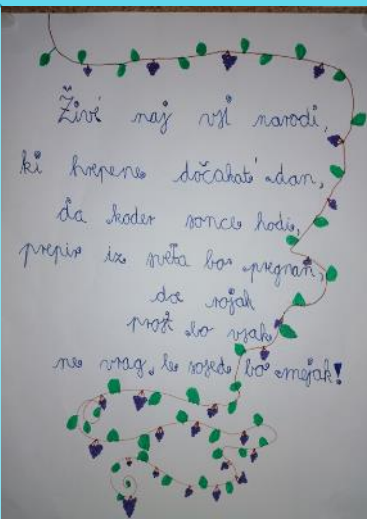 Živé naj vsi narodi,
ki hrepene dočakat' dan,
da koder sonce hodi,
prepir iz svéta bo pregnan,
da rojak
prost bo vsak,
ne vrag, le sosed bo mejak!